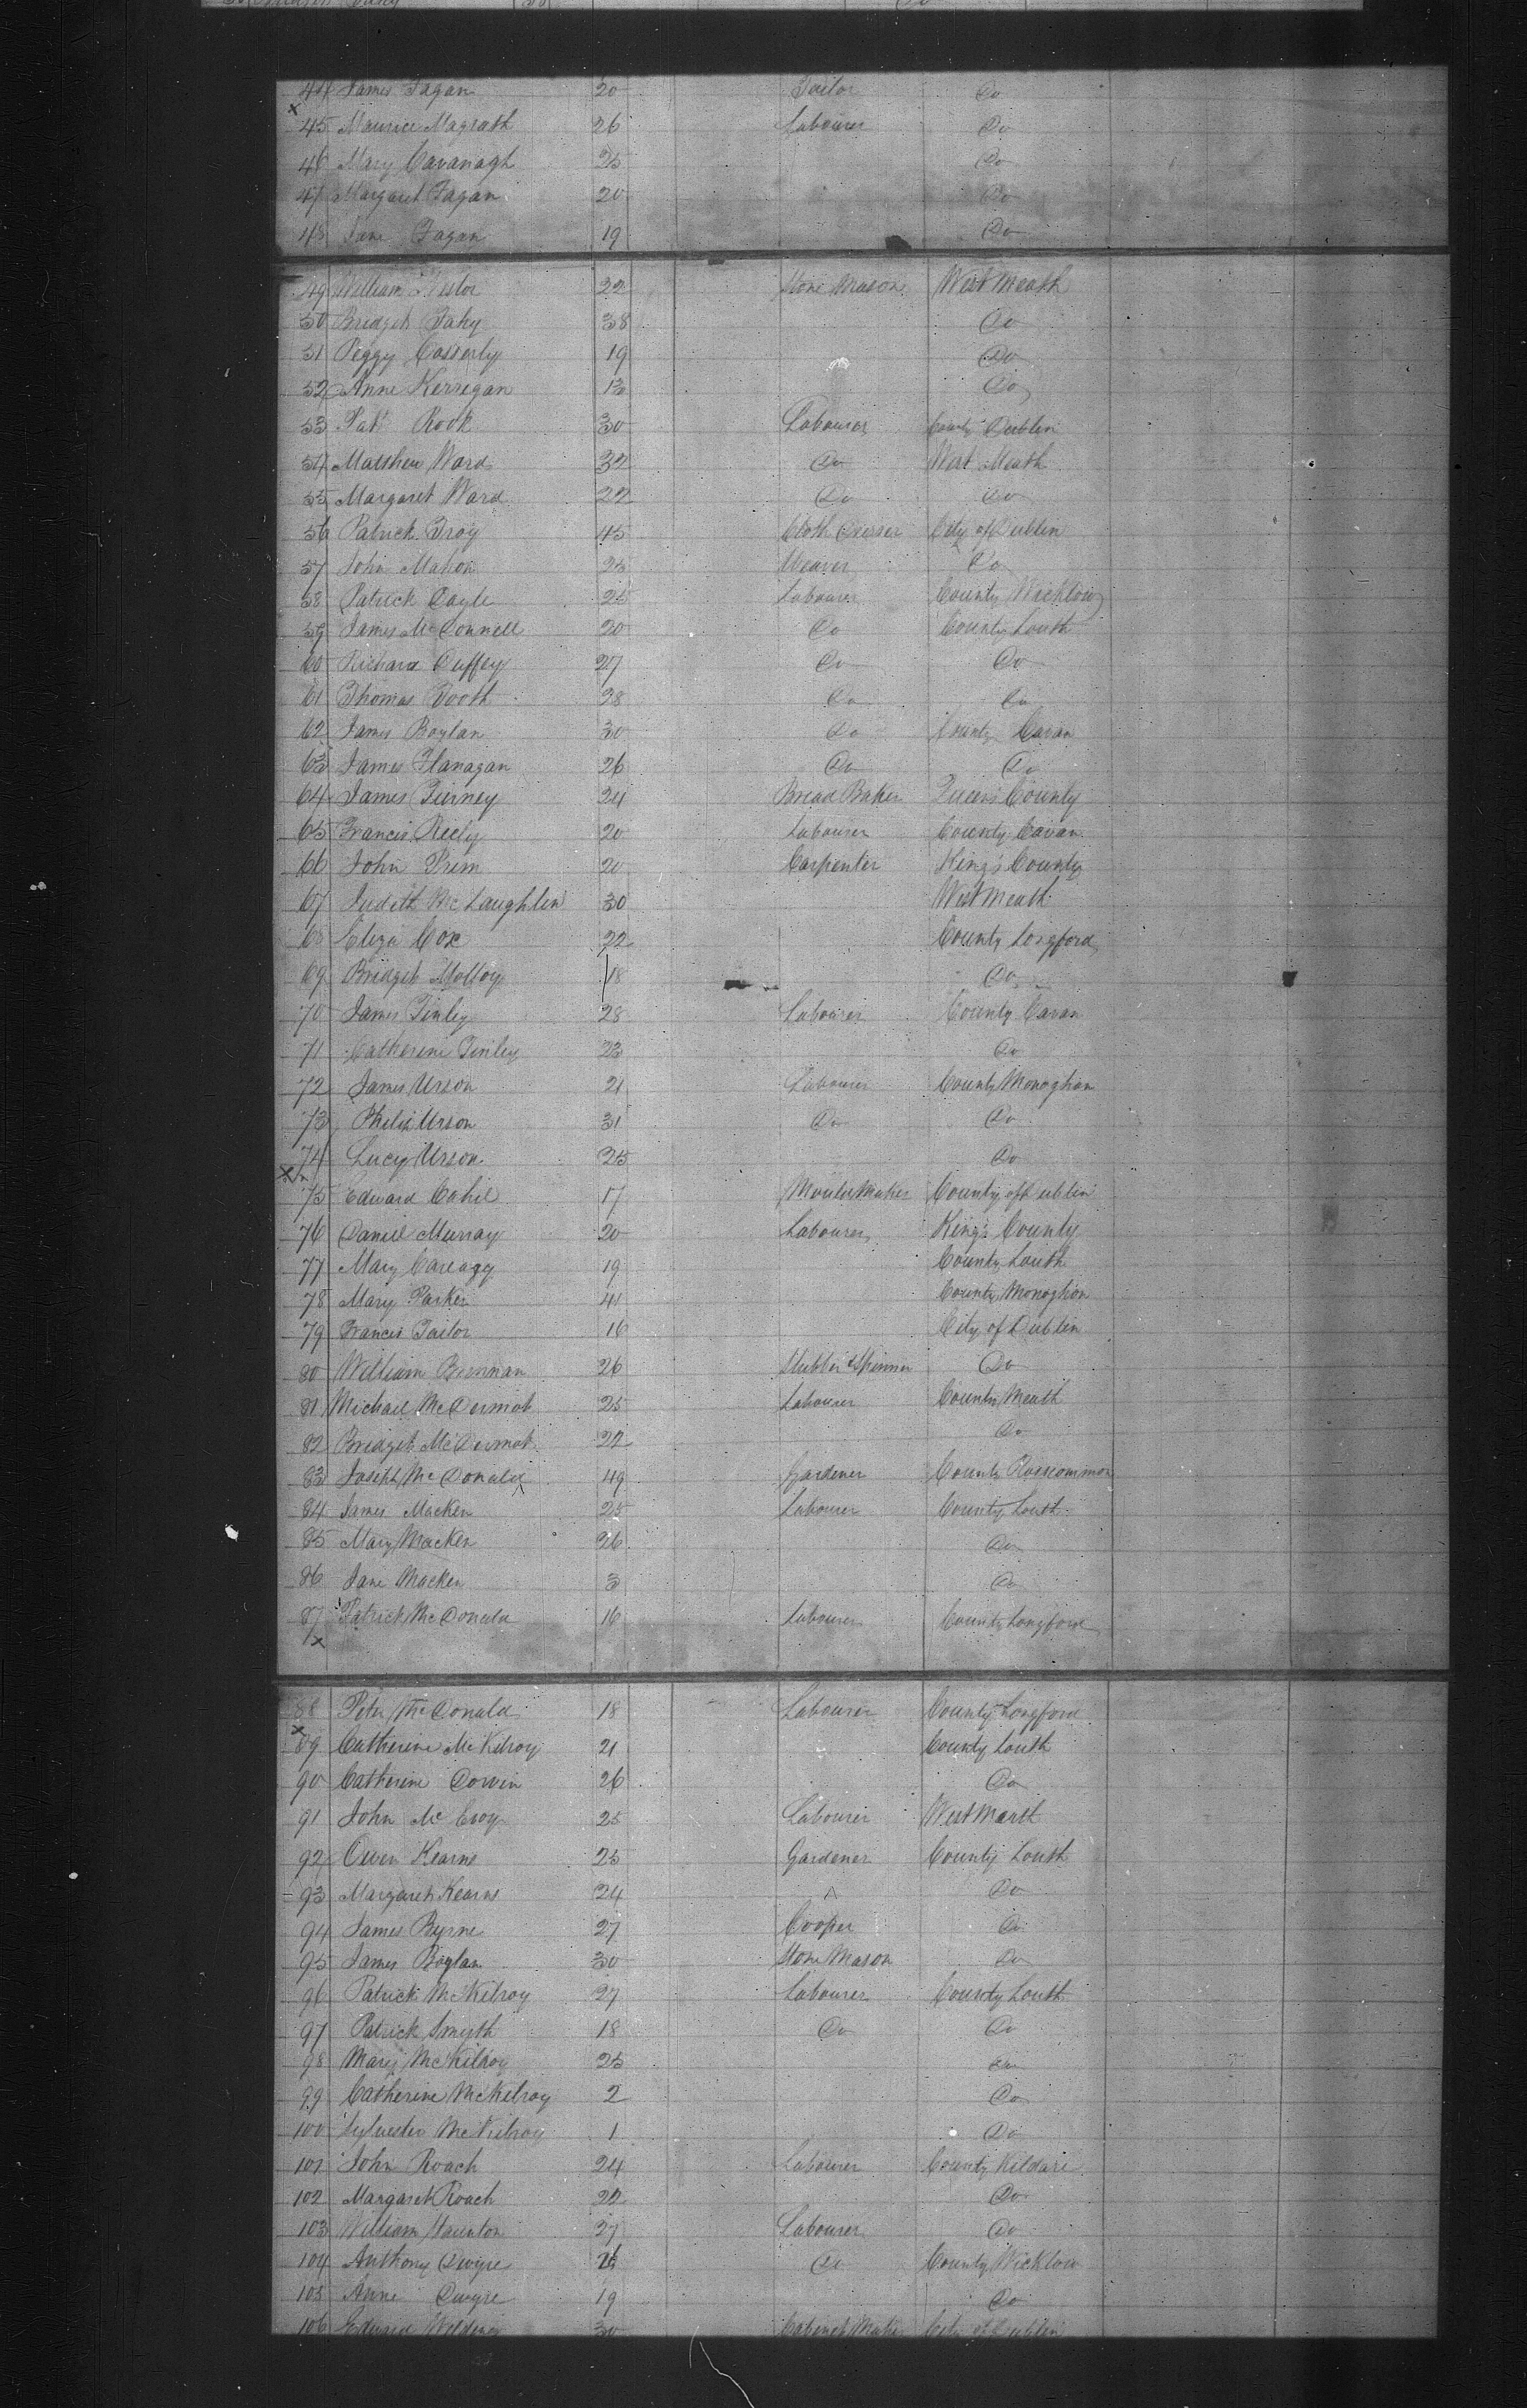 44 James Fagan 20 Tailor Do
45 Maurice Magrath 26 Labourer Do
46 Mary Cavanagh 25 Do
47 Margaret Fagan 20 Do
48 Jane Fagan 19 Do
49 William 22 Stone Mason West Meath
50 Bridget Fahy 38 Do
51 Peggy Casserly 19 Do
52 Anne Kerregan 13 Do
53 Patk Rook 30 Labourer County Dublin
54 Matthew Ward 32 Do West Meath
55 Margaret Ward 22 Do Do
56 Patrick Troy 45 Cloth Dresser City of Dublin
57 John Mahon 25 Weaver Do
58 Patrick Doyle 25 Labourer County Wicklow
59 James McConnell 20 Do County Louth
60 Richard Duffey 27 Do Do
61 Thomas Booth 28 Do Do
62 James Boylan 30 Do County Cavan
63 James Flanagan 26 Do Do
64 James Tierney 24 Bread Baker Queen's County
65 Francis Reely 20 Labourer County Cavan
66 John Prim 20 Carpenter King's County
67 Judith McLaughlin 30 West Meath
68 Eliza Cox 22 County Longford
69 Bridget Molloy 18 Do
70 James Finley 28 Labourer County Cavan
71 Catherine Finley 23 Do
72 James Urson 21 Labourer County Monoghan
73 Philip Urson 31 Do Do
74 Lucy Urson 25 Do
75 Edward Cahil 17 Mould Maker County of Dublin
76 Daniel Murray 20 Labourer King's County
77 Mary 19 County Louth
78 Mary Parker 41 County Monoghan
79 Francis Tailor 16 City of Dublin
80 William Brennan 26 & Spinner Do
81 Michael McDermot 25 Labourer County Meath
82 Bridget McDermot 22 Do
83 Joseph McDonald 49 Gardener County Roscommon
84 James Macken 25 Labourer County Louth
85 Mary Macken 26 Do
86 Jane Macken 3 Do
87 Patrick McDonald 16 Labourer County Longford
88 Peter McDonald 18 Labourer County Longford
89 Catherine McKilroy 21 County Louth
90 Catherine Dowin 26 Do
91 John McEvoy 25 Labourer West Marth
92 Owen Kearns 25 Gardener County Louth
93 Margaret Kearns 24 Do
94 James Byrne 27 Cooper Do
95 James Boylan 30 Stone Mason Do
96 Patrick McKilroy 27 Labourer County Louth
97 Patrick Smyth 18 Do Do
98 Mary McKilroy 25 Do
99 Catherine McKilroy 2 Do
100 Sylvester McKilroy 1 Do
101 John Roach 24 Labourer County Kildare
102 Margaret Roach 22 Do
103 William Staunton 27 Labourer Do
104 Anthony Dwyre 26 Do County Wicklow
105 Anne Dwyre 19 Do
106 Edward 30 Cabinet Maker City of Dublin